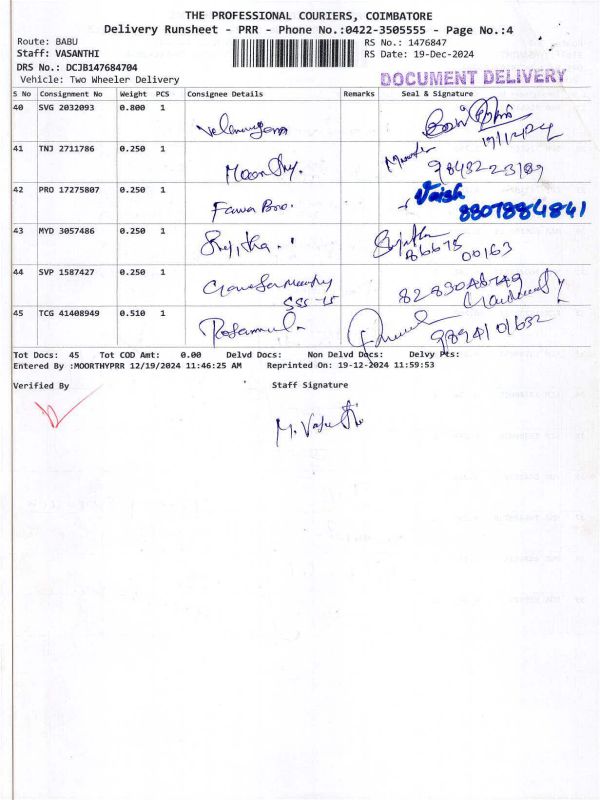 THE PROFESSIONAL COURIERS, COIMBATORE
Delivery Runsheet - PRR - Phone No.:0422-3505555 - Page No.:4
Route: BABU RS No.: 1476847
Staff: VASANTHI RS Date: 19-Dec-2024
DRS No.: DCJB147684704
Vehicle: Two Wheeler Delivery DOCUMENT DELIVERY
S No Consignment No Weight PCS Consignee Details Remarks Seal & Signature
40 SVG 2032093 0.800 1
19/12/24
41 TNJ 2711786 0.250 1 Moorthy.
9843223189
42 PRO 17275807 0.250 1 Vaish
8807884841
43 MYD 3057486 0.250 1
86675 00163
44 SVP 1587427 0.250 1
45 TCG 41408949 0.510 1
9894101632
Tot Docs: 45 Tot COD Amt: 0.00 Delvd Docs: Non Delvd Docs: Delvy Pts:
Entered By :MOORTHYPRR 12/19/2024 11:46:25 AM Reprinted On: 19-12-2024 11:59:53
Verified By Staff Signature